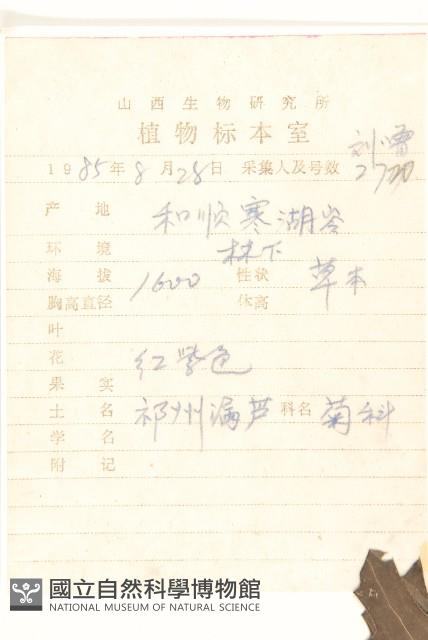 山西生物研究所
植物标本室
1985年8月28日 采集人及号数 刘 2720
产地 和顺寒湖岺
环境 林下
海拔 1600 性状 草本
胸高直径 体高
叶
花 红紫色
果实
土名 祁州漏芦 科名 菊科
学名
附记
國立自然科學博物館
NATIONAL MUSEUM OF NATURAL SCIENCE